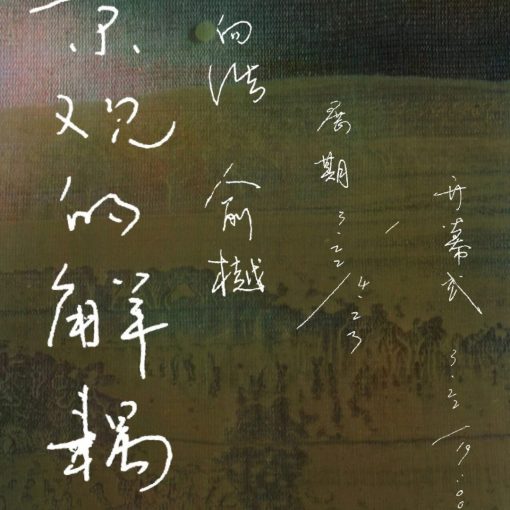 景观的解耦
向 俞樾
展期 3.22/4.23
开幕式 3.22/19:00